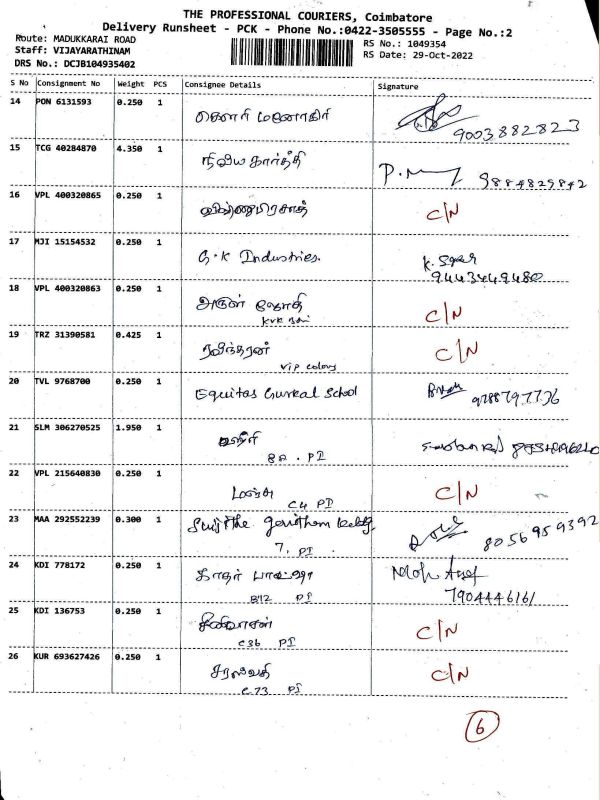 THE PROFESSIONAL COURIERS, Coimbatore
Delivery Runsheet - PCK - Phone No.:0422-3505555 - Page No.:2
Route: MADUKKARAI ROAD
RS No.: 1049354
Staff: VIJAYARATHINAM
RS Date: 29-Oct-2022
DRS No.: DCJB104935402
S No Consignment No Weight PCS Consignee Details Signature
14 PON 6131593 0.250 1 கௌரி மனோகரி
9003882823
15 TCG 40284870 4.350 1 நிவிய கார்த்தி
9884829842
16 VPL 400320865 0.250 1 விஷ்ணுபிரசாத் C/N
17 MJI 15154532 0.250 1 G.K Industries.
9443449480
18 VPL 400320863 0.250 1 அருள் ஜோதி C/N
KVK
19 TRZ 31390581 0.425 1 ரவிந்தரன் C/N
VIP colony
20 TVL 9768700 0.250 1 Equitas Gurukal School 9788797736
21 SLM 306270525 1.950 1
8A . PI
22 VPL 215640830 0.250 1 மஞ்சு C/N
C4 PI
23 MAA 292552239 0.300 1 8056959392
7. PI
24 KDI 778172 0.250 1 காதர் பாட்ஷா Moh Asef
B12 PI 7904446161
25 KDI 136753 0.250 1 சீனிவாசன் C/N
C36 PI
26 KUR 693627426 0.250 1 சரஸ்வதி C/N
C.73 PI
6